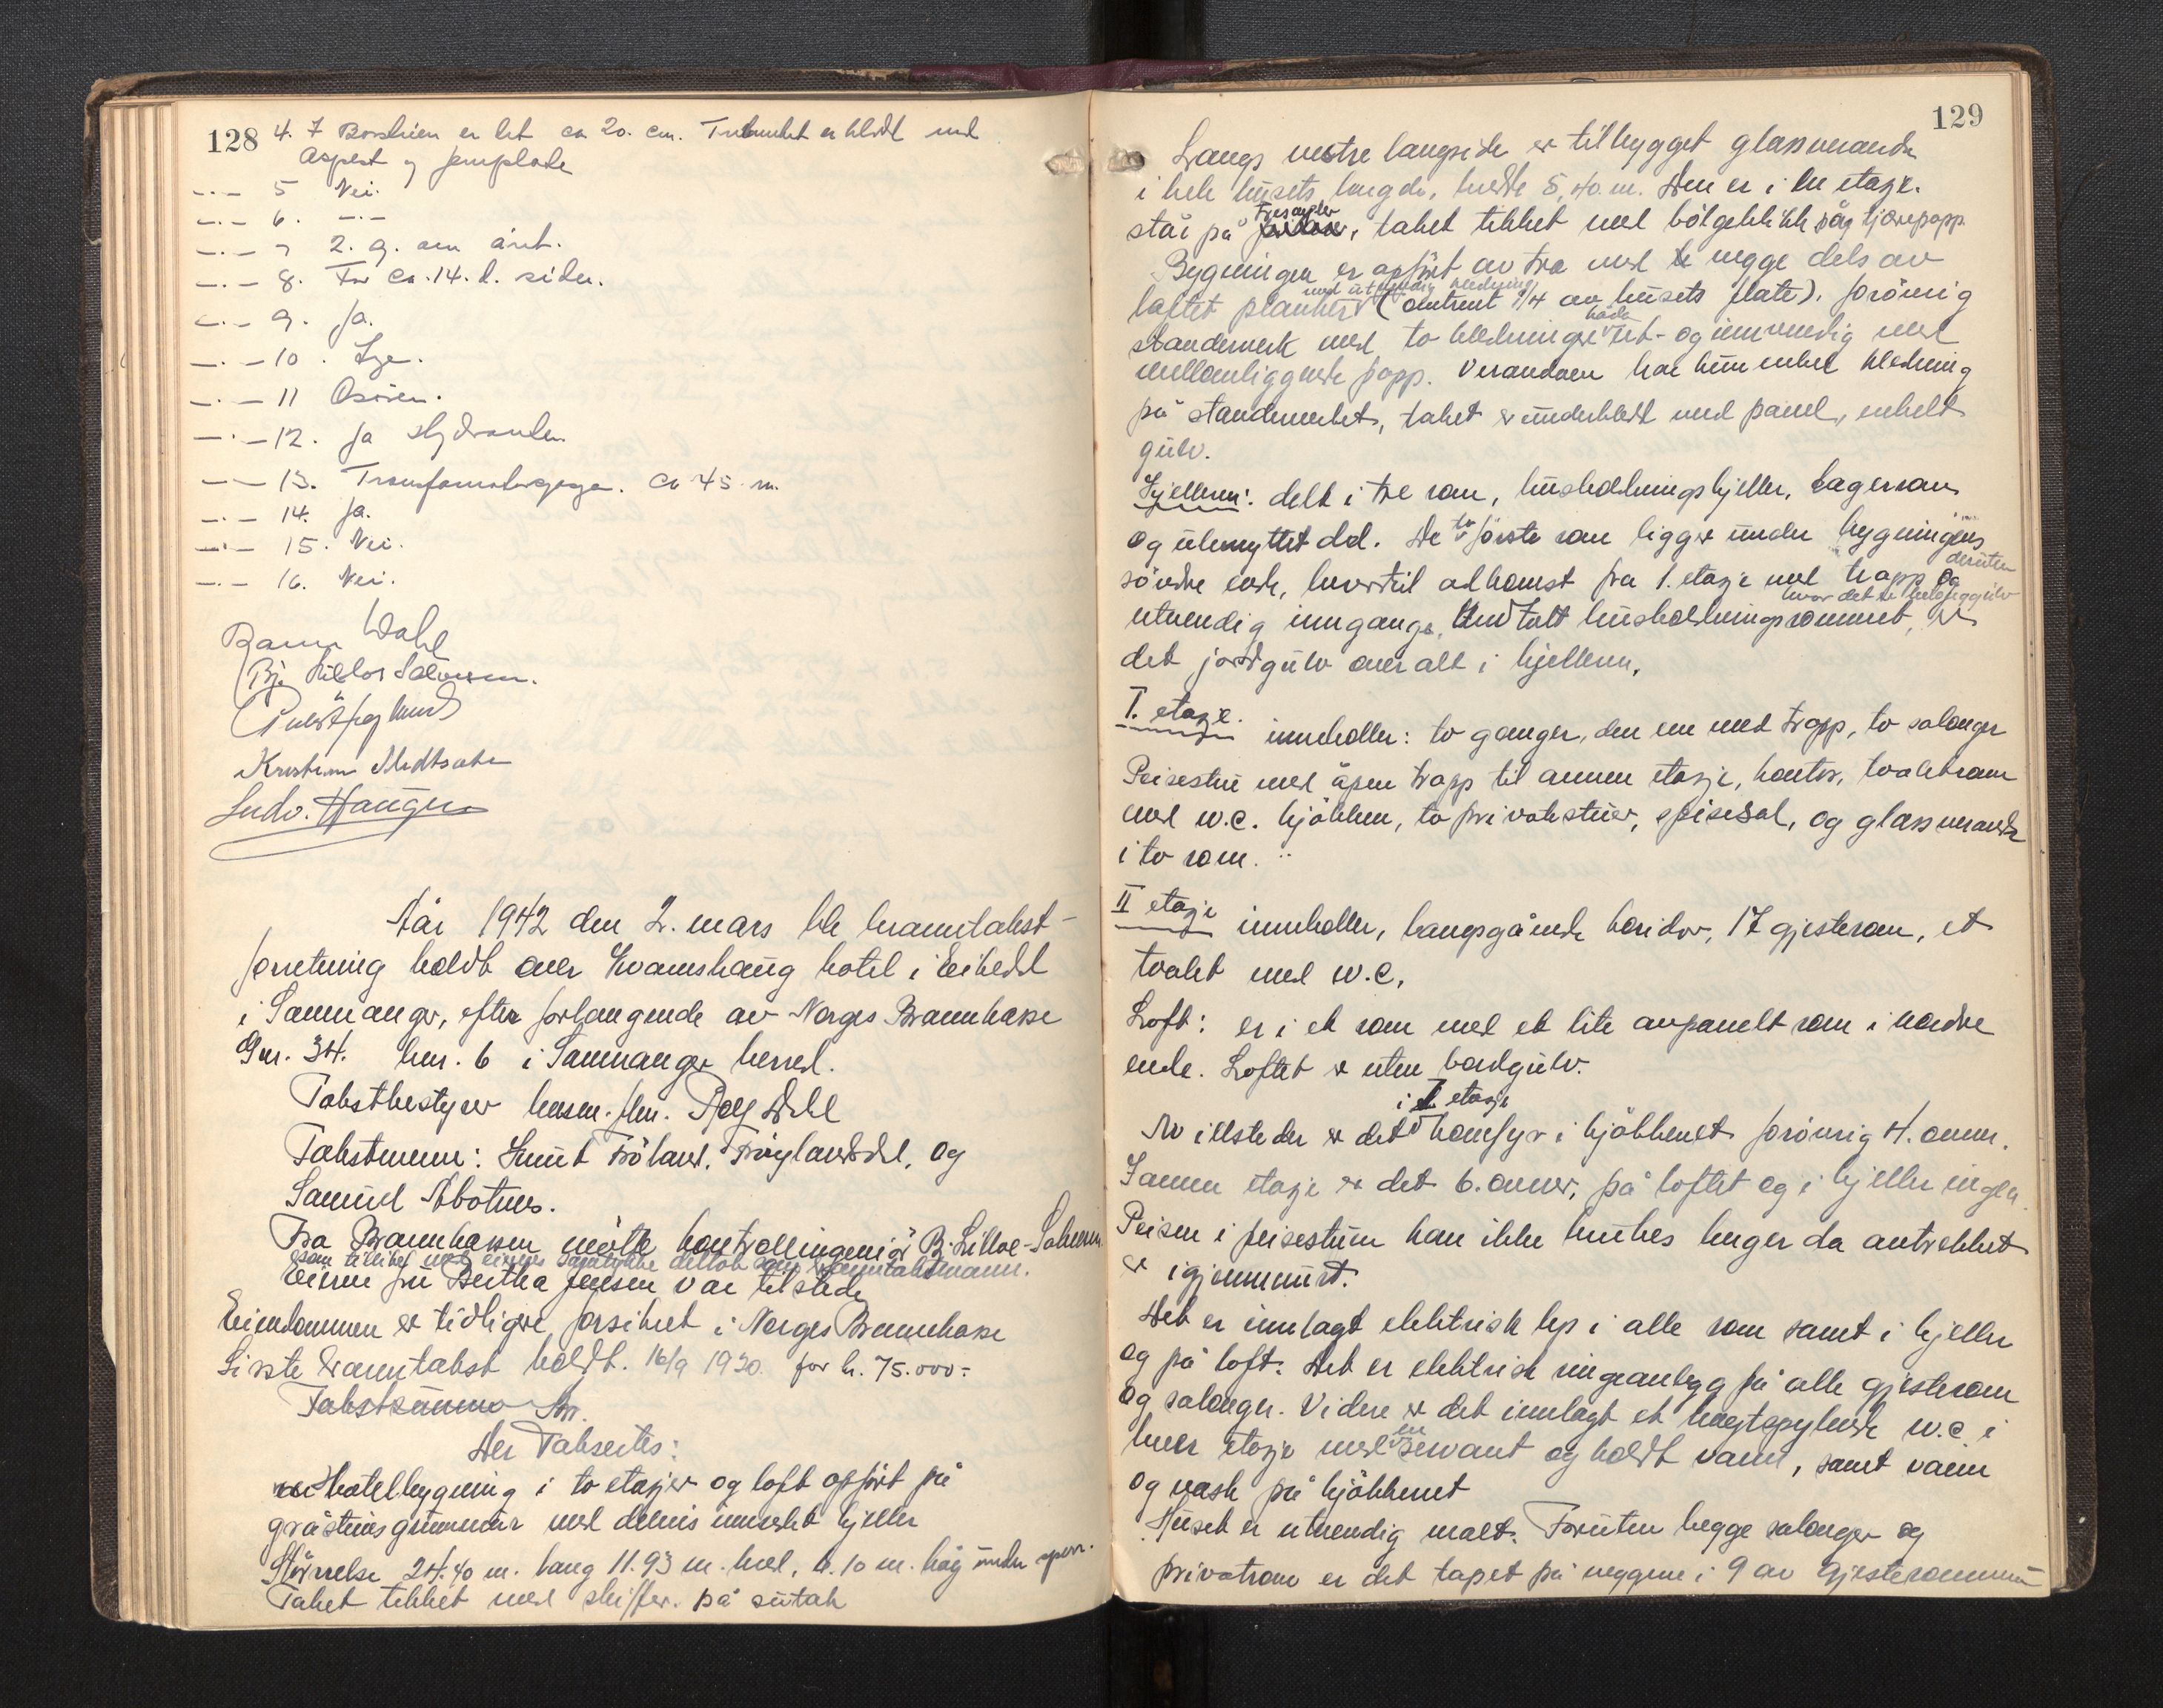 128
4. 7 Borskien er let ca 20. cm. Trebunket er kledt med
Aspest og jernplade
-.- 5 Nei.
-.- 6. -.-
-.- 7 2. g. om året.
-.- 8. For ca. 14. d. siden.
-.- 9. Ja.
-.- 10. Lye.
-.- 11 Osøren.
-.- 12. Ja Hydranten
-.- 13. Transformator ca 45 m.
-.- 14. Ja.
-.- 15. Nei.
-.- 16. Nei.
Wahl
Kristian Medtsater
Ludv. Haugen
År 1942 den 2. mars ble branntakst-
forretning holdt over Kvamshaug hotel i Eikedal
i Samnanger, efter forlangende av Norges Brannkasse
Gnr. 34. bnr. 6 i Samnanger herred.
Takstbestyrer lensm. flm. Rolf Dahl
Takstmenn: Knut Frøland, Frøylandsdal, og
Samuel Åbotnes.
Fra Brannkassen møtte kontrollingeniør B. Lilloe-Salvesen
som tillike med eierens samtykke deltok som branntakstmann.
Eieren fru Bertha Jensen var tilstede
Eiendommen er tidligere forsikret i Norges Brannkasse
Siste branntakst holdt. 16/9 1930. for kr. 75.000.-
Takstsummer
Der Takseres:
Hotelbygning i to etasjer og loft opført på
gråsteinsgrunnmur med delvis innredet kjeller
Størrelse 24.40 m. lang 11.93 m. bred, 6.10 m. høg under sperr.
Taket tekket med skiffer. på sutak
129
Langs vestre langside er tilbygget glassveranda
i hele husets lengde, bredde 5,40 m. Den er i en etasje.
Tresøyler
står på , taket tekket med bølgeblikk og tjærepapp.
Bygningen er opført av tre med vegge dels av
med utvendig kledning
laftet planker (omtrent 1/4 av husets flate). forøvrig
både
standerverk med to kledninger ut- og innvendig med
mellomliggende papp. Verandaen har kun enkel kledning
på standerverket, taket er underkledt med panel, enkelt
gulv.
Kjelleren: delt i tre rom, husholdningskjeller, lagerrom
og ubenyttet del. De to første rom ligger under bygningens
søndre ende, hvortil adkomst fra 1. etasje med trapp og desuten
utvendig inngange. Undtatt husholdningsrommet, hvor det er betonggulv er
det jordgulv overalt i kjelleren.
I. etasje. inneholder: to ganger, den ene med trapp, to salonger
Peisestue med åpen trapp til annen etasje, kontor, toaletrom
med w.c. kjøkken, to privatstuer, spisesal, og glassveranda
i to rom.
II etasje inneholder, langsgående koridor, 17 gjesterom, et
toalet med w.c.
Loft: er i et rom med et lite avpanelt rom i nordre
ende. Loftet er uten bordgulv.
i I. etasje
Av ildsteder er det komfyr i kjøkkenet forøvrig 4. ovner.
I annen etasje er det 6. ovner, på loftet og i kjeller ingen.
Peisen i peisestuen kan ikke brukes lenger da avtrekket
er igjenmurt.
Det er innlagt elektrisk lys i alle rom samt i kjeller
og på loft. Det er elektrisk ringeanlegg på alle gjesterom
og salonger. Videre er det innlagt et høgtspylende w.c. i
hver etasje med en servant og koldt vann, samt vann
og vask på kjøkkenet
Huset er utvendig malt. Foruten begge salonger og
privatrom er det tapet på veggene i 9 av gjesterommene